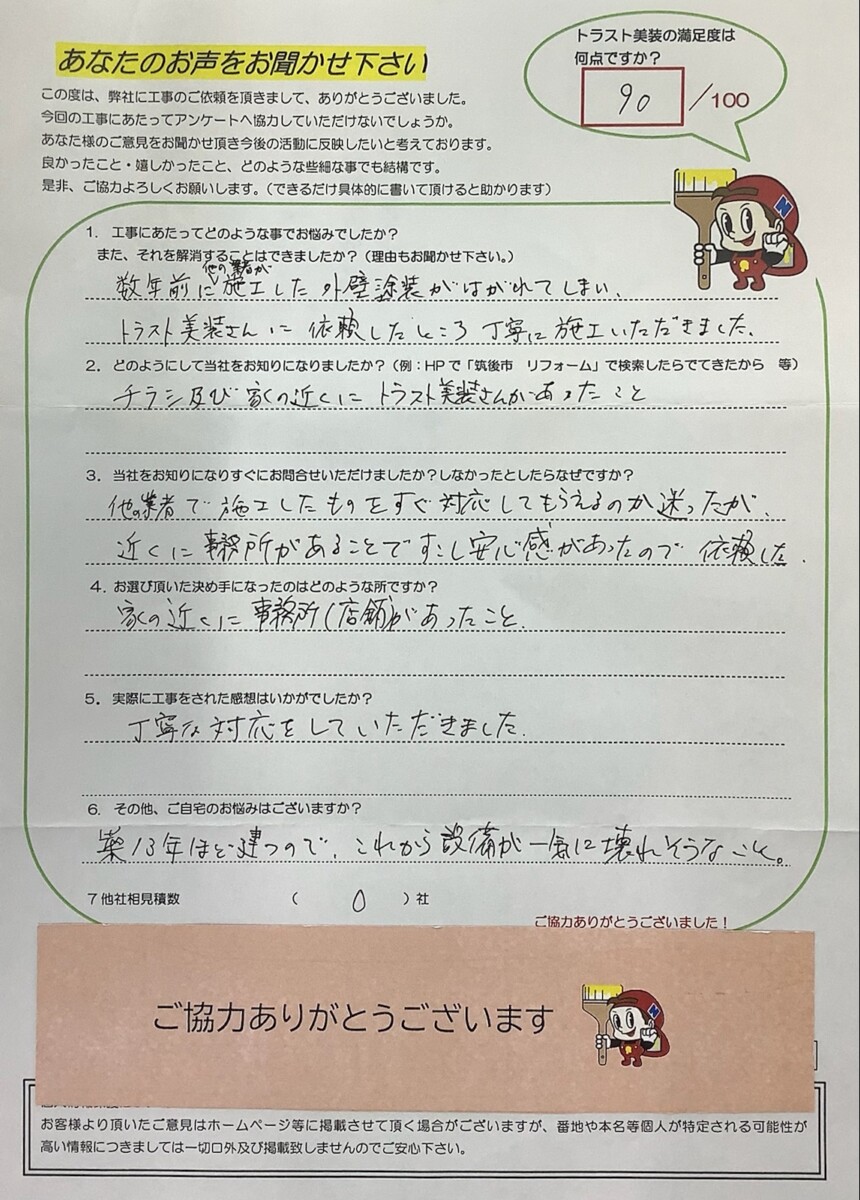 あなたのお声をお聞かせ下さい
トラスト美装の満足度は
何点ですか?
90/100
この度は、弊社に工事のご依頼を頂きまして、ありがとうございました。
今回の工事にあたってアンケートへ協力していただけないでしょうか。
あなた様のご意見をお聞かせ頂き今後の活動に反映したいと考えております。
良かったこと・嬉しかったこと、どのような些細な事でも結構です。
是非、ご協力よろしくお願いします。(できるだけ具体的に書いて頂けると助かります)
1. 工事にあたってどのような事でお悩みでしたか?
また、それを解消することはできましたか?(理由もお聞かせ下さい。)
他の業者が
数年前に施工した外壁塗装がはがれてしまい、
トラスト美装さんに依頼したところ丁寧に施工いただきました。
2. どのようにして当社をお知りになりましたか?(例:HPで「筑後市 リフォーム」で検索したらでてきたから 等)
チラシ及び家の近くにトラスト美装さんがあったこと
3. 当社をお知りになりすぐにお問合せいただけましたか?しなかったとしたらなぜですか?
他の業者で施工したものをすぐ対応してもらえるのか迷ったが、
近くに事務所があることですこし安心感があったので依頼した.
4. お選び頂いた決め手になったのはどのような所ですか?
家の近くに事務所(店舗)があったこと.
5. 実際に工事をされた感想はいかがでしたか?
丁寧な対応をしていただきました.
6. その他、ご自宅のお悩みはございますか?
築13年ほど建つので、これから設備が一気に壊れそうなこと。
7 他社相見積数 ( 0 )社
ご協力ありがとうございました!
ご協力ありがとうございます
お客様より頂いたご意見はホームページ等に掲載させて頂く場合がございますが、番地や本名等個人が特定される可能性が
高い情報につきましては一切口外及び掲載致しませんのでご安心下さい。